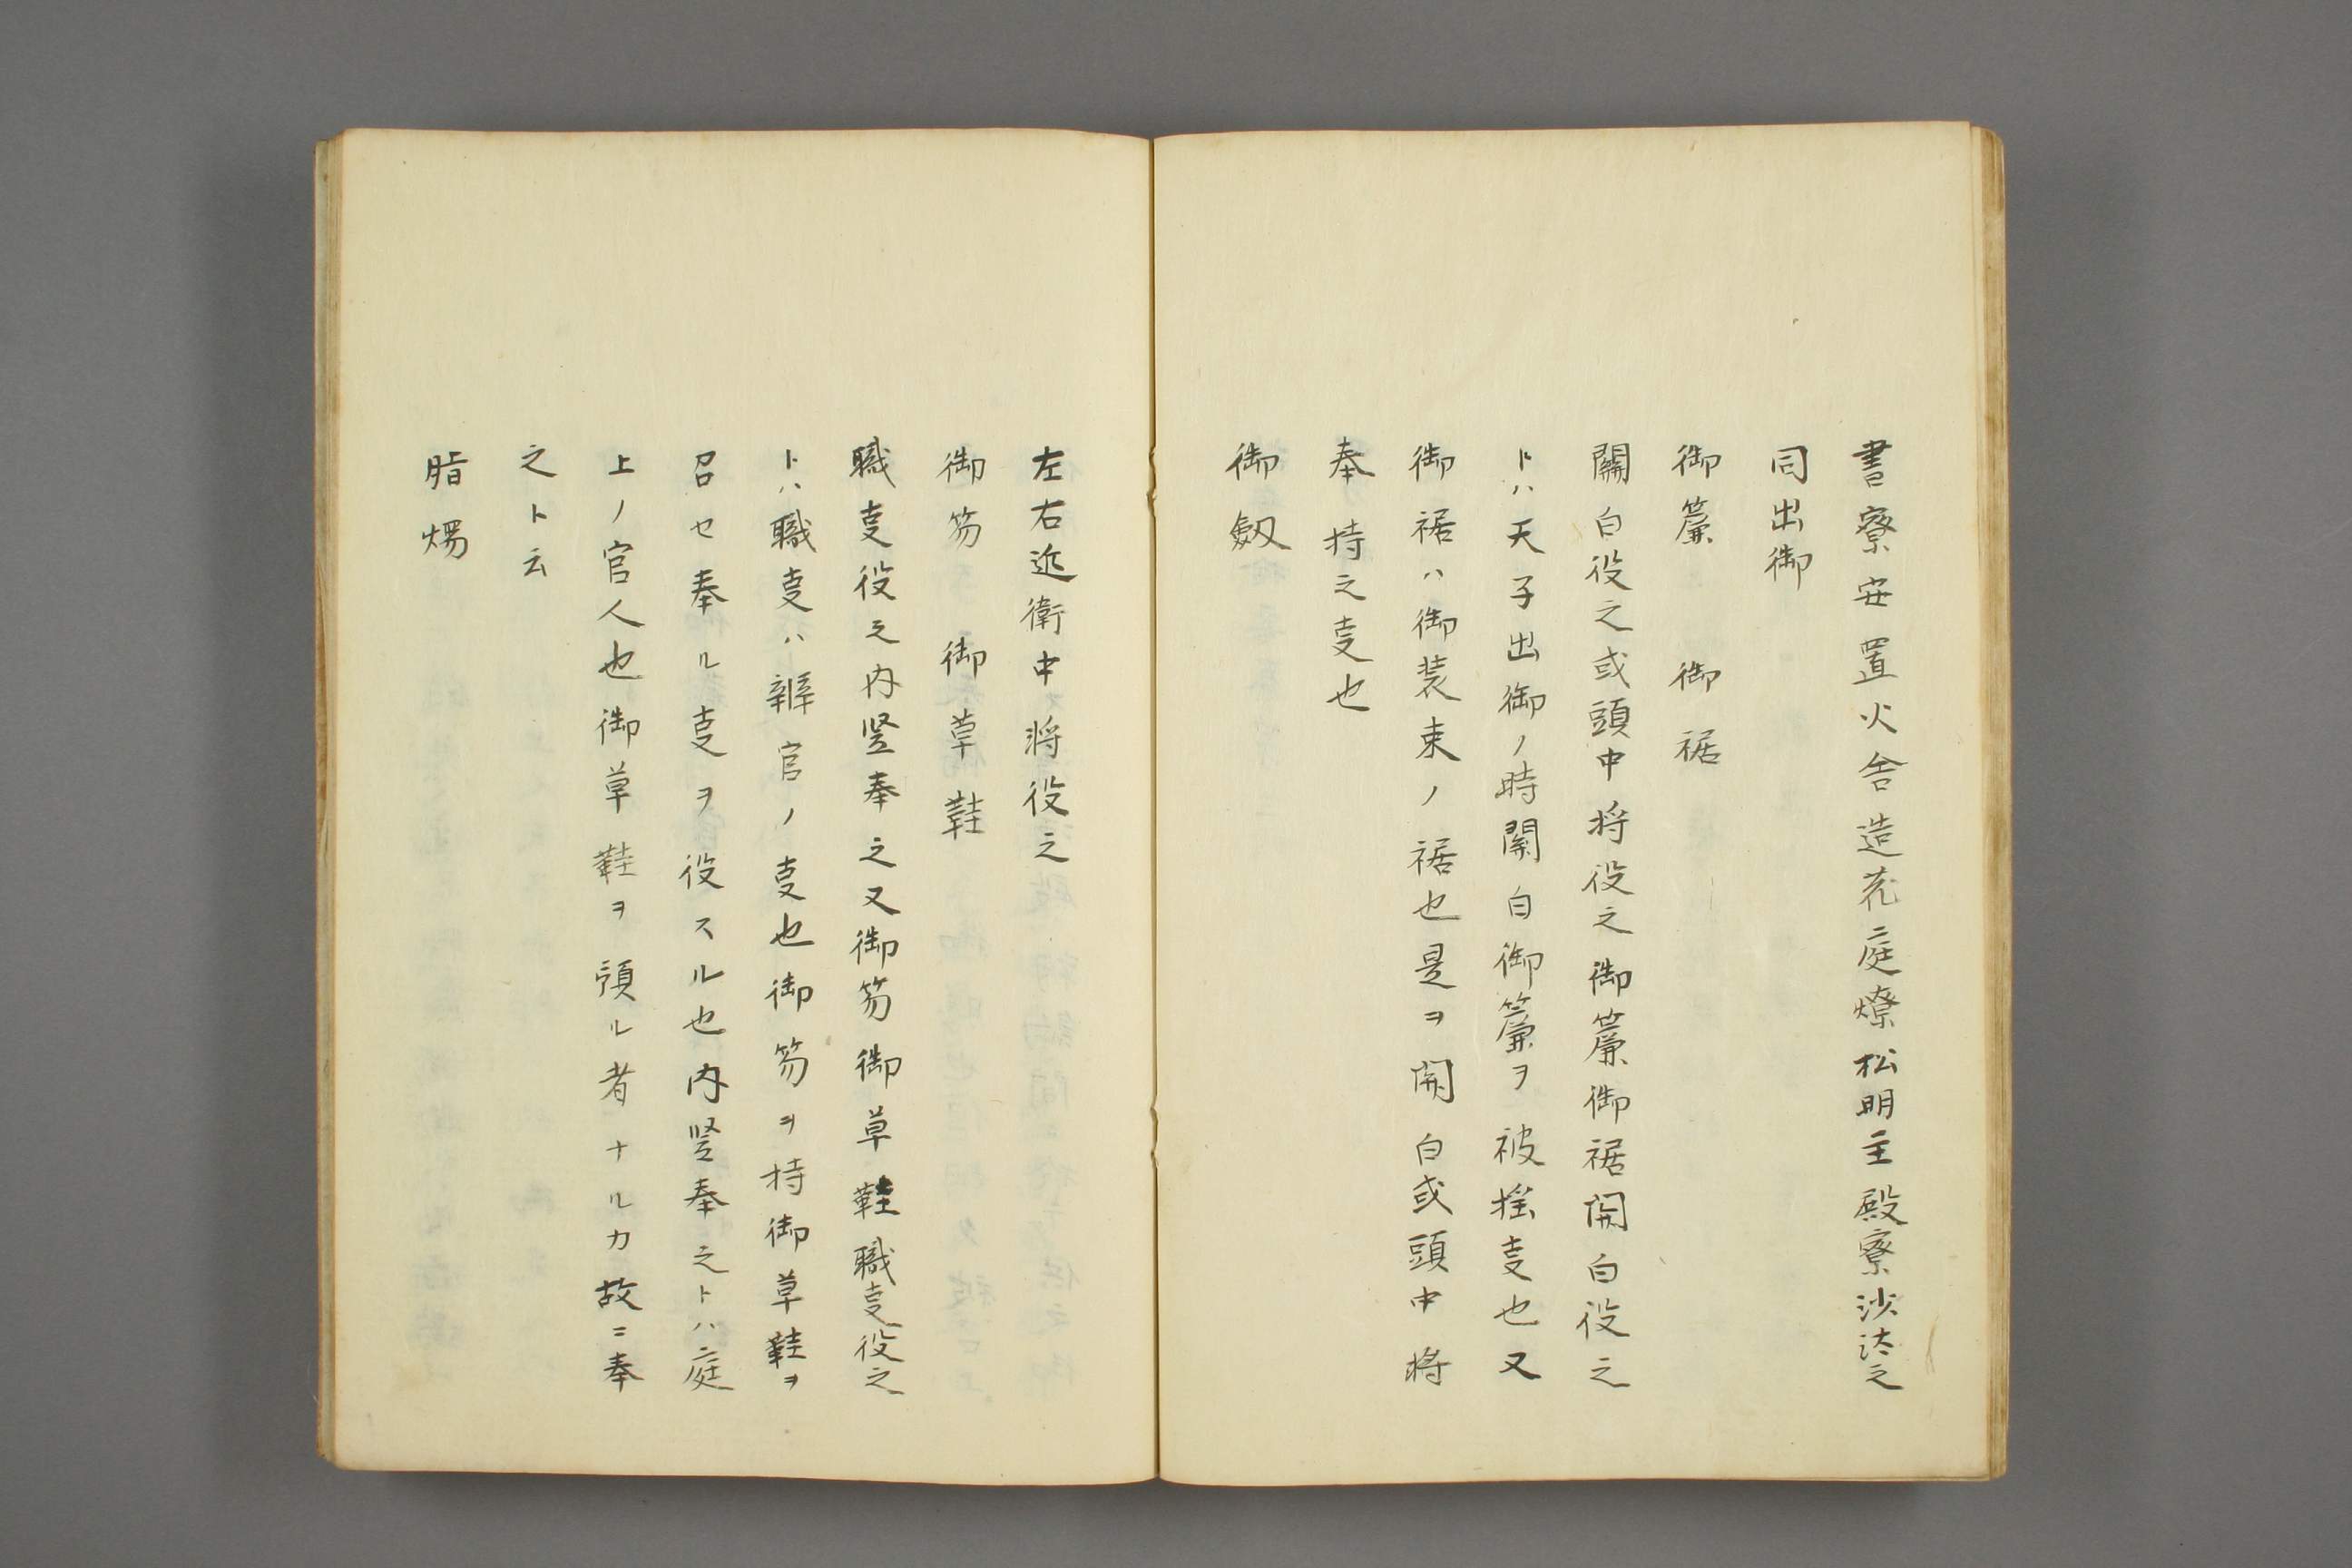 書寮安置火舎造花庭燎松明主殿寮沙汰之
同出御
御簾　御裾
關白役之或頭中将役之御簾御裾関白役之
トハ天子出御ノ時関白御簾ヲ被揺叓也又
御裾ハ御装束ノ裾也是ヲ関白或頭中将
奉持之叓也
御剱
左右近衛中将役之
御笏　御草鞋
職叓役之内竪奉之又御笏御草鞋職叓役之
トハ職叓ハ辨官ノ叓也御笏ヲ持御草鞋ヲ
召セ奉ル叓ヲ役スル也内竪奉之トハ庭
上ノ官人也御草鞋ヲ預ル者ナルカ故ニ奉
之ト云
脂燭